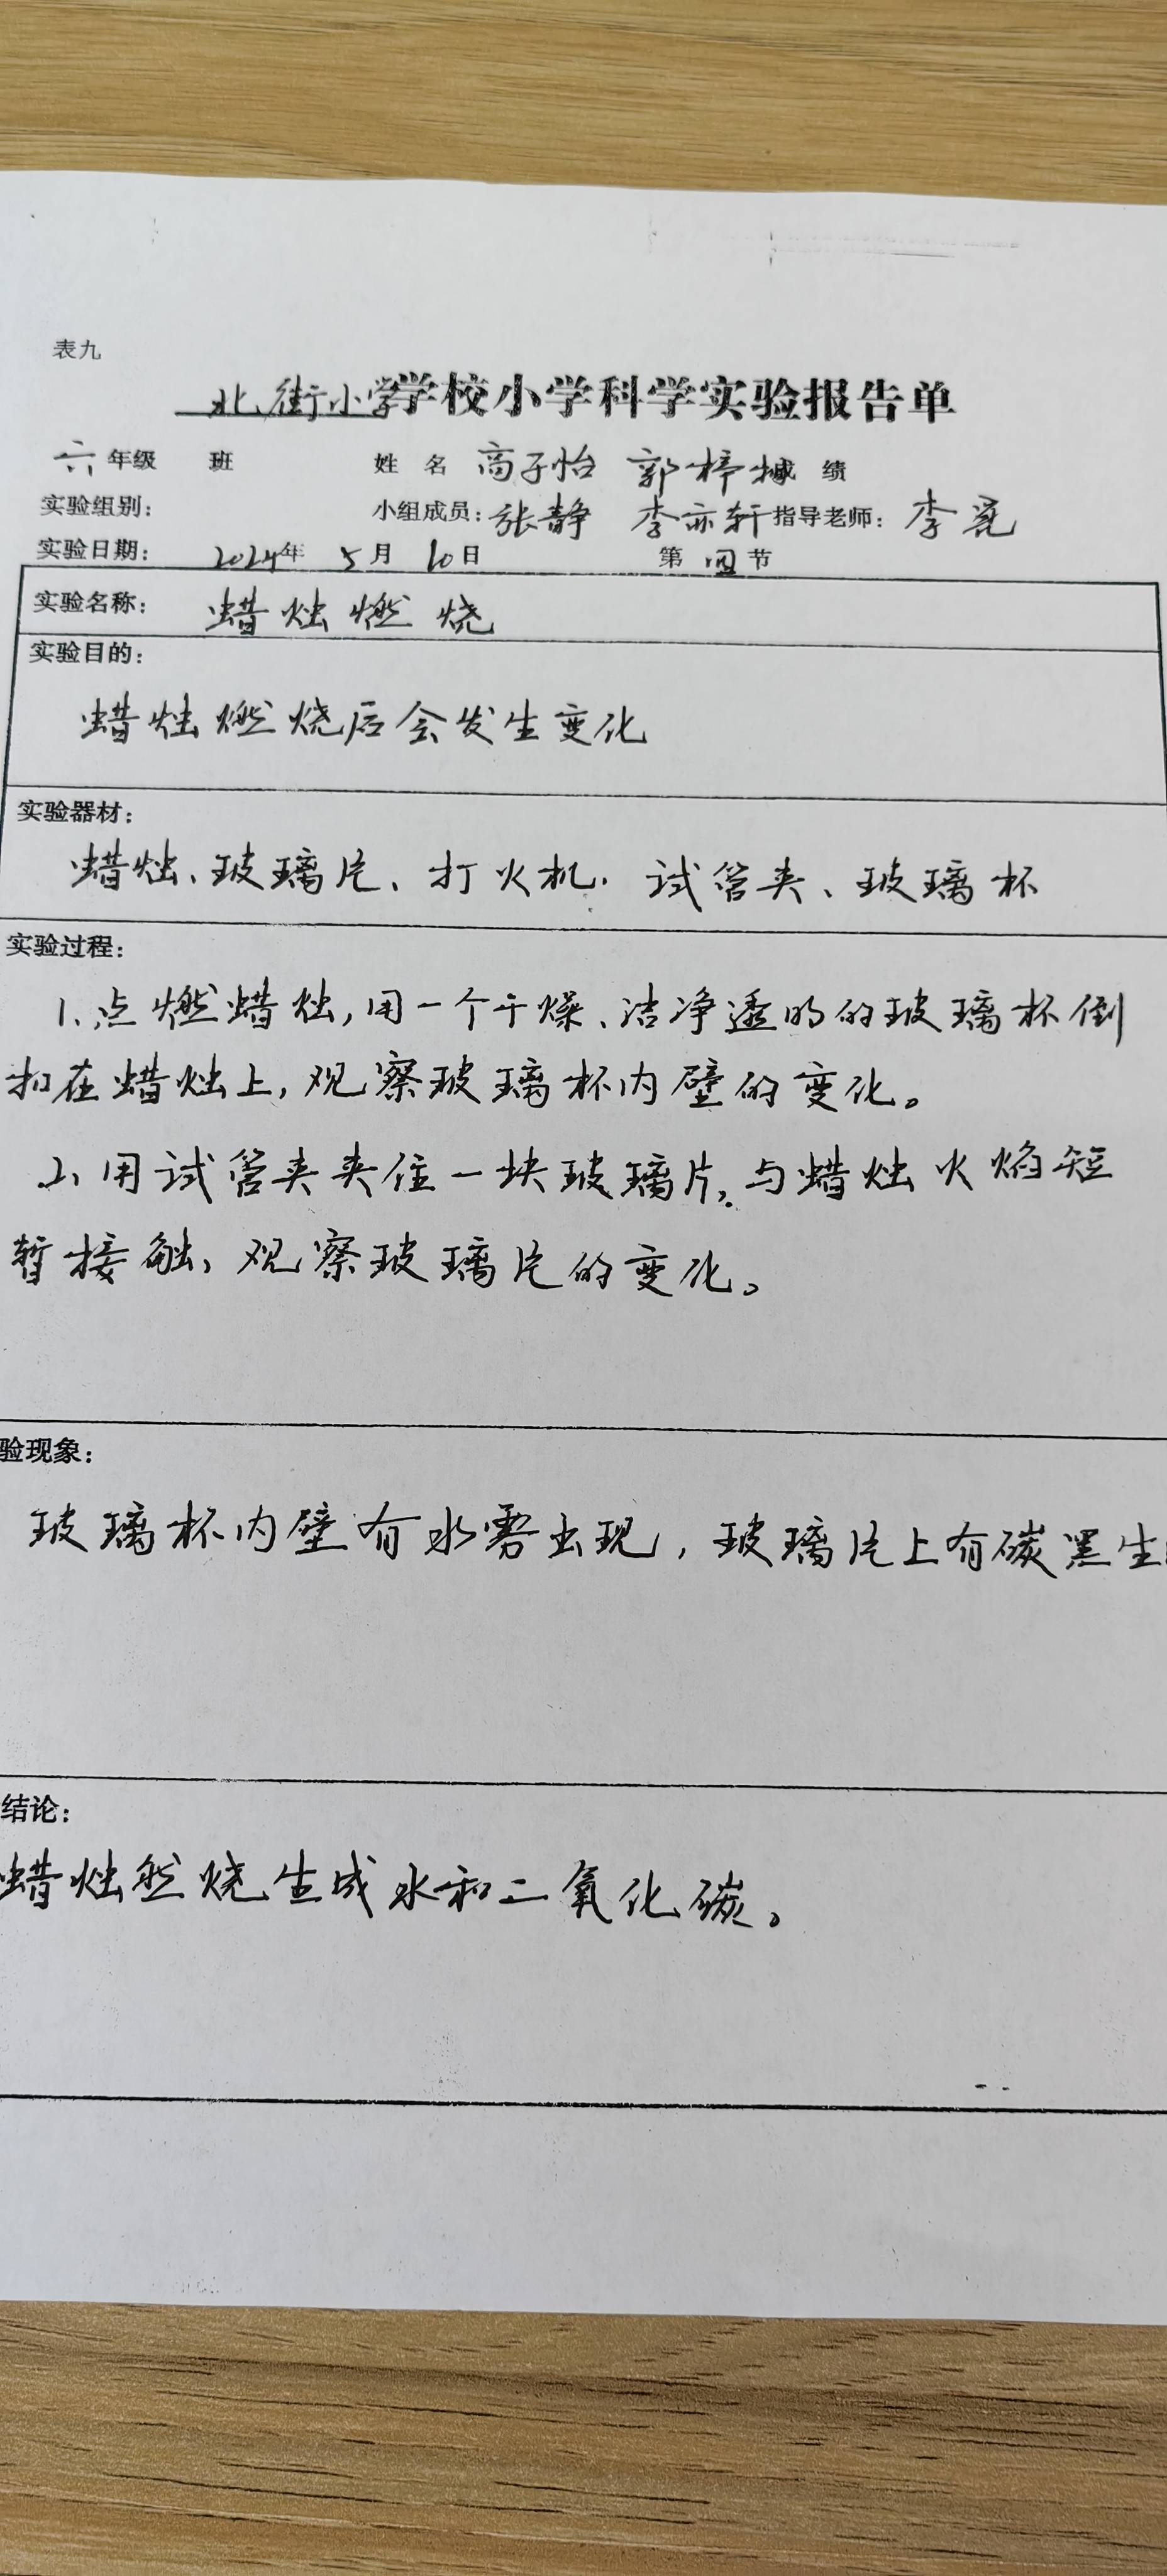 表九
北街小学学校小学科学实验报告单
六年级 班 姓名 高子怡 郭梓 成绩
实验组别： 小组成员：张静 李亦轩 指导老师：李亮
实验日期： 2024年 5月 10日 第四节
实验名称： 蜡烛燃烧
实验目的：
蜡烛燃烧后会发生变化
实验器材：
蜡烛、玻璃片、打火机、试管夹、玻璃杯
实验过程：
1、点燃蜡烛，用一个干燥、洁净透明的玻璃杯倒
扣在蜡烛上，观察玻璃杯内壁的变化。
2、用试管夹夹住一块玻璃片，与蜡烛火焰短
暂接触，观察玻璃片的变化。
验现象：
玻璃杯内壁有水雾出现，玻璃片上有碳黑生
结论：
蜡烛然烧生成水和二氧化碳。